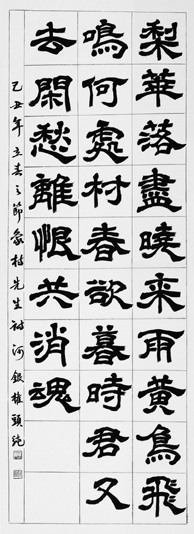 梨華落盡曉来雨黃鳥飛
鳴何處村春欲暮時君又
去閑愁離恨共消魂
乙丑年立春之節象村先生詩河銀權頭純